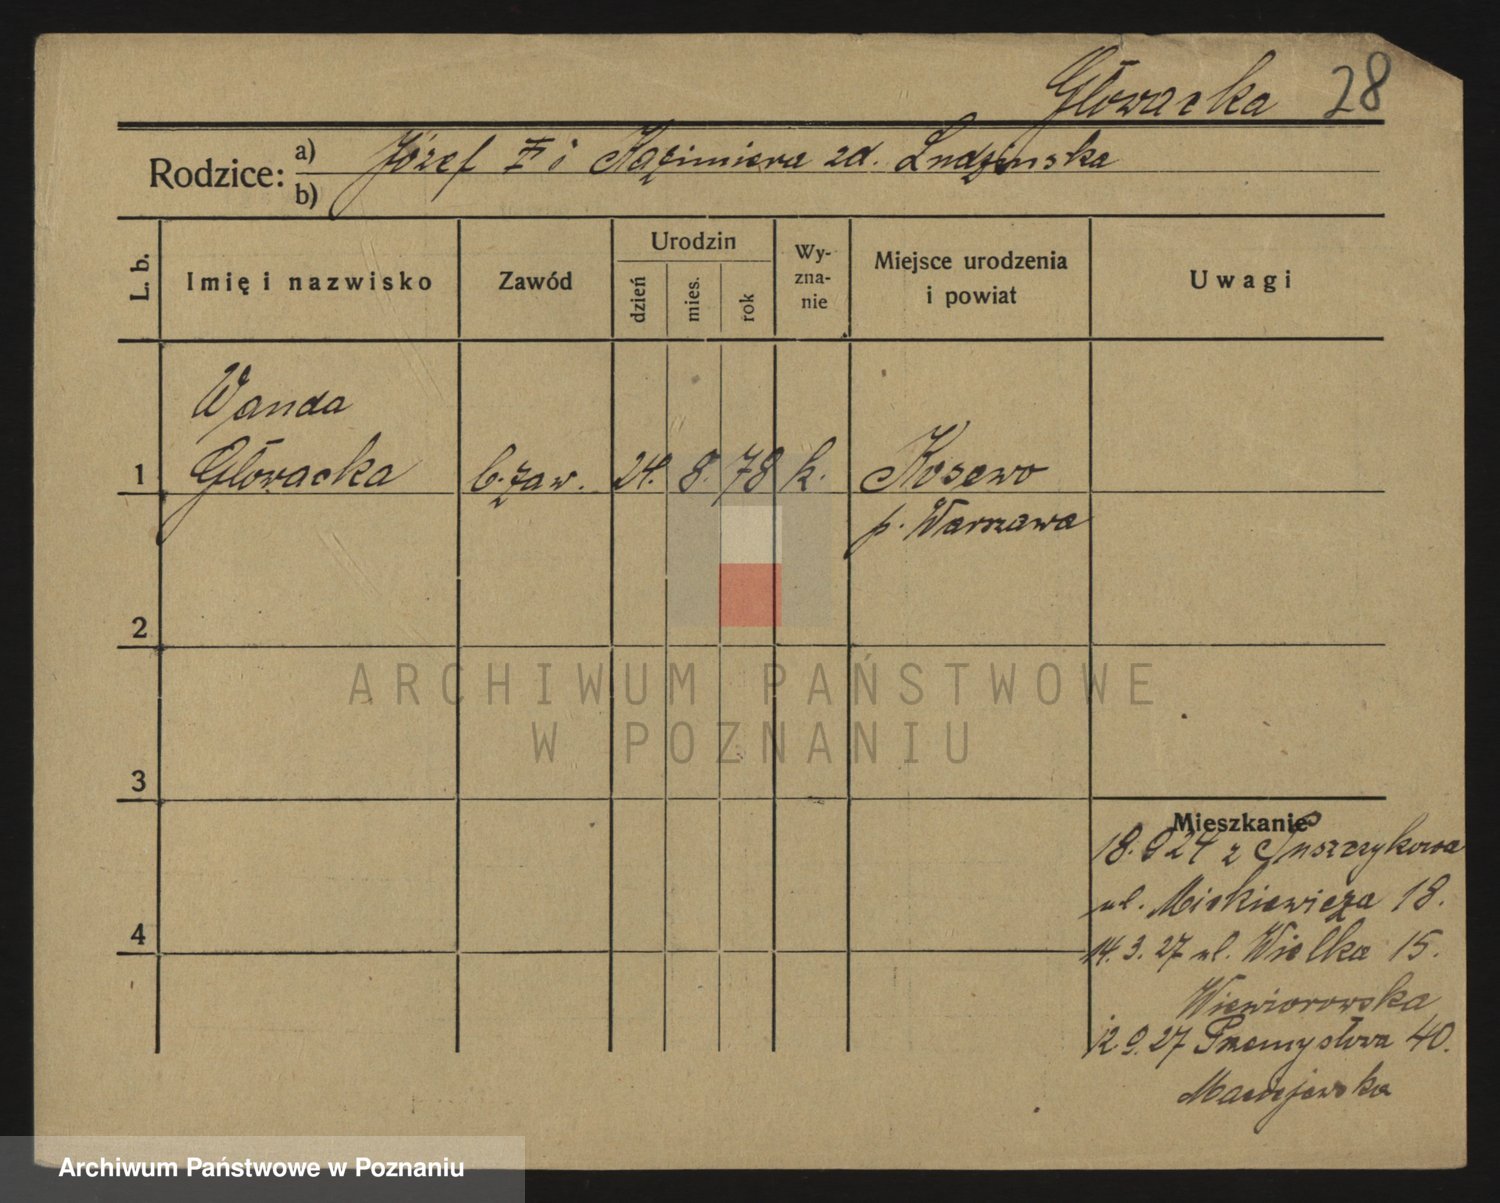 Głowacka 28
Rodzice: a) Józef # i Kazimiera zd. Ludzinska
b)
L. b.
Imię i nazwisko
Zawód
Urodzin
dzień
mies.
rok
Wy-
zna-
nie
Miejsce urodzenia
i powiat
Uwagi
Wanda
1 Głowacka b. zaw. 24. 8. 78 k. Kosewo
p. Warszawa
2
ARCHIWUM PAŃSTWOWE
W POZNANIU
3
Mieszkanie
18. 9 24 z Puszczykowa
ul. Mickiewicza 18.
4
14. 3. 27 ul. Wielka 15.
Wiewiorowska
12. 9. 27 Przemysłowa 40.
Maciejewska
Archiwum Państwowe w Poznaniu